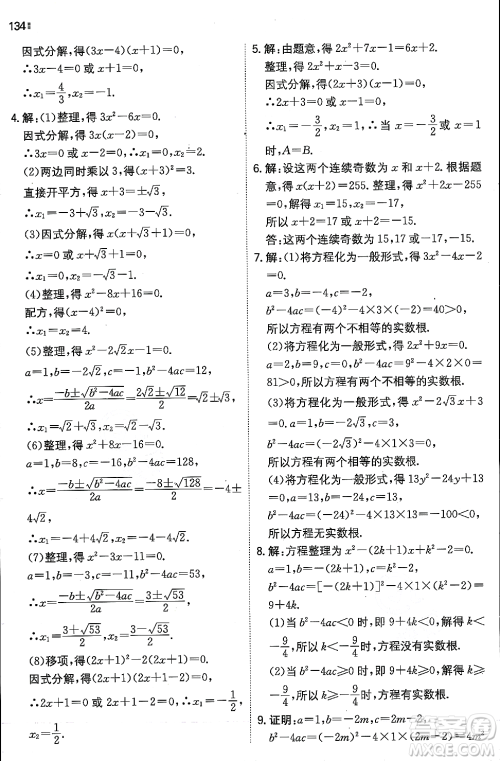 134
因式分解,得(3x-4)(x+1)=0,
∴3x-4=0 或 x+1=0,
∴x₁=4/3,x₂=-1.
4. 解:(1)整理,得 3x²-6x=0.
因式分解,得 3x(x-2)=0,
∴3x=0 或 x-2=0,∴x₁=0,x₂=2.
(2)两边同时乘以 3,得(x+3)²=3.
直接开平方,得 x+3=±√3,
∴x₁=-3+√3,x₂=-3-√3.
(3)因式分解,得 x(x+√3)=0,
∴x=0 或 x+√3=0,
∴x₁=0,x₂=-√3.
(4)整理,得 x²-8x+16=0.
配方,得(x-4)²=0,
∴x₁=x₂=4.
(5)整理,得 x²-2√2x-1=0,
a=1,b=-2√2,c=-1,b²-4ac=12,
∴x=(-b±√(b²-4ac))/2a=(2√2±√12)/2=√2±√3,
∴x₁=√2+√3,x₂=√2-√3.
(6)整理,得 x²+8x-16=0.
a=1,b=8,c=-16,b²-4ac=128,
∴x=(-b±√(b²-4ac))/2a=(-8±8√2)/2=-4±
4√2,
∴x₁=-4+4√2,x₂=-4-4√2.
(7)整理,得 x²-3x-11=0.
a=1,b=-3,c=-11,b²-4ac=53,
∴x=(-b±√(b²-4ac))/2a=(3±√53)/2,
∴x₁=(3+√53)/2,x₂=(3-√53)/2.
(8)移项,得(2x+1)²-2(2x+1)=0.
因式分解,得(2x+1)(2x+1-2)=0,
∴2x+1=0 或 2x-1=0,∴x₁=-1/2,
x₂=1/2.
5. 解:由题意,得 2x²+x-1=x²+4x-1.
整理,得 x²-3x=0.
因式分解,得 x(x-3)=0,
∴x=0 或 x-3=0,
∴x₁=0,x₂=3,∴当 x=0 或 x=3
时,A=B.
6. 解:设这两个连续奇数为 x 和 x+2.根据题
意,得 x(x+2)=255.整理,得 x²+2x=255.
解得 x₁=-17,x₂=15.
所以 x+2=-15 或 x+2=17.
答:这两个连续奇数为 15,17 或-17,-15.
7. 解:(1)将方程化为一般形式,得 3x²-4x-2
=0.
a=3,b=-4,c=-2,
b²-4ac=(-4)²-4×3×(-2)=40>0,
所以方程有两个不相等的实数根.
(2)将方程化为一般形式,得 2x²+x-10=0.
a=2,b=1,c=-10,
b²-4ac=1²-4×2×(-10)=
81>0,所以方程有两个不相等的实数根.
(3)将方程化为一般形式,得 x²-2√3x+3=0.
a=1,b=-2√3,c=3,
b²-4ac=(-2√3)²-4×1×3=0,
所以方程有两个相等的实数根.
(4)将方程化为一般形式,得 13y²-24y+13
=0.
a=13,b=-24,c=13,
b²-4ac=(-24)²-4×13×13=-100<0,
所以方程无实数根.
8. 解:方程整理为 x²-(2k+1)x+k²-2=0,
a=1,b=-(2k+1),c=k²-2,
b²-4ac=[-(2k+1)]²-4×1×(k²-2)=
9+4k.
(1)当 b²-4ac<0 时,即 9+4k<0,解得 k<
-9/4,所以 k<-9/4 时,方程无实数根.
(2)当 b²-4ac≥0 时,即 9+4k≥0,解得 k≥
-9/4,所以 k≥-9/4 时,方程有实数根.
9. 证明:a=1,b=-2m,c=2m-2,
b²-4ac=(-2m)²-4×1×(2m-2)=4m²